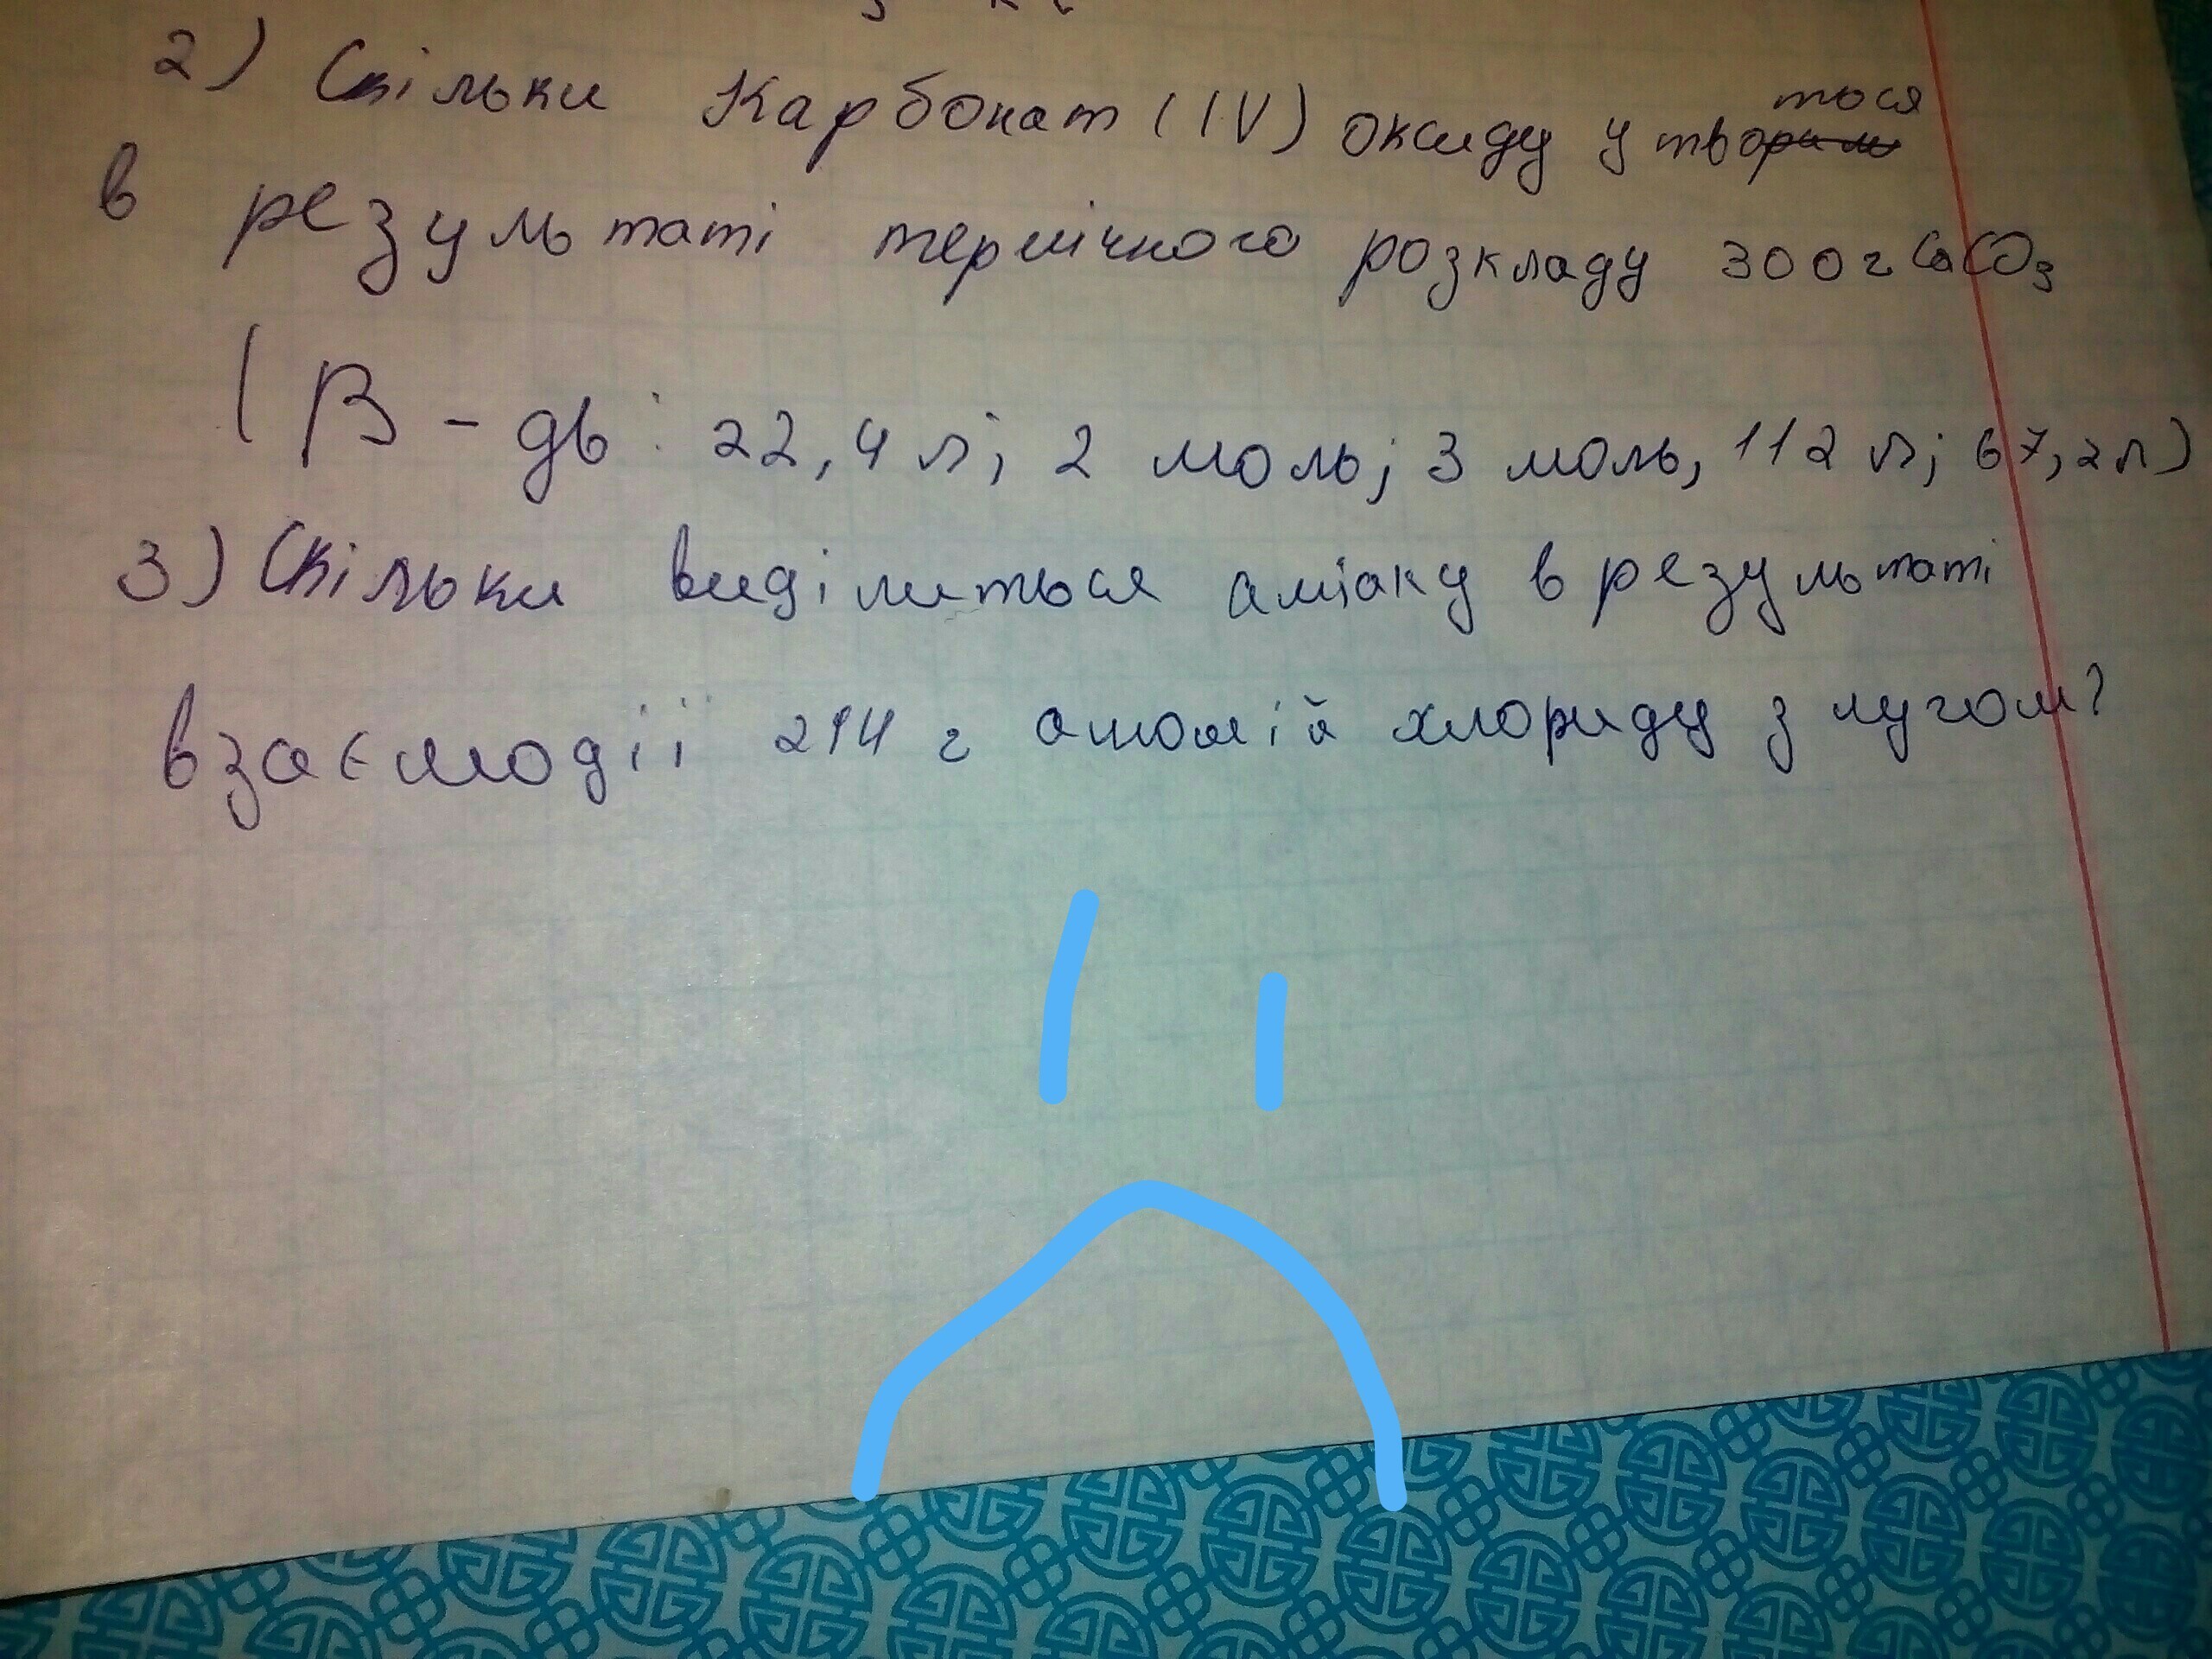 2) Скільки Карбонат (IV) оксиду утвориться
в результаті термічного розкладу 300г CaCO3
(В-дь: 22,4 л; 2 моль; 3 моль, 112 л; 67,2л)
3) Скільки виділиться аміаку в результаті
взаємодії 214 г амоній хлориду з лугом?